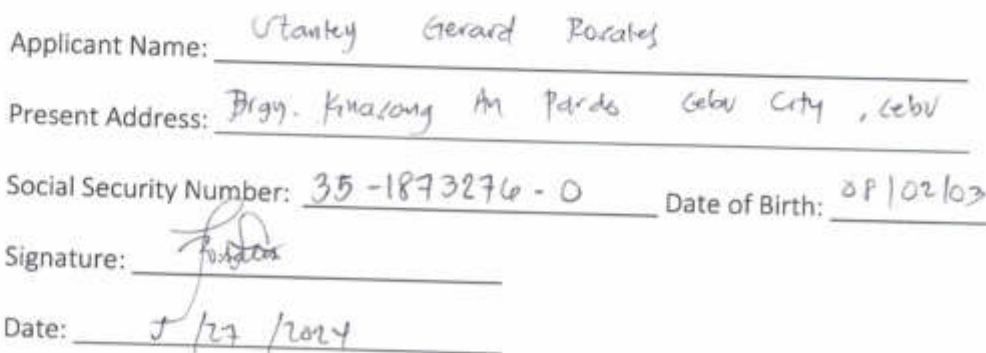 Applicant Name: Stanley Gerard Rosales
Present Address: Brgy. Kinasang An Pardo Cebu City, Cebu
Social Security Number: 35-1873276-0 Date of Birth: 08/02/03
Signature:
Date: 5/27/2024